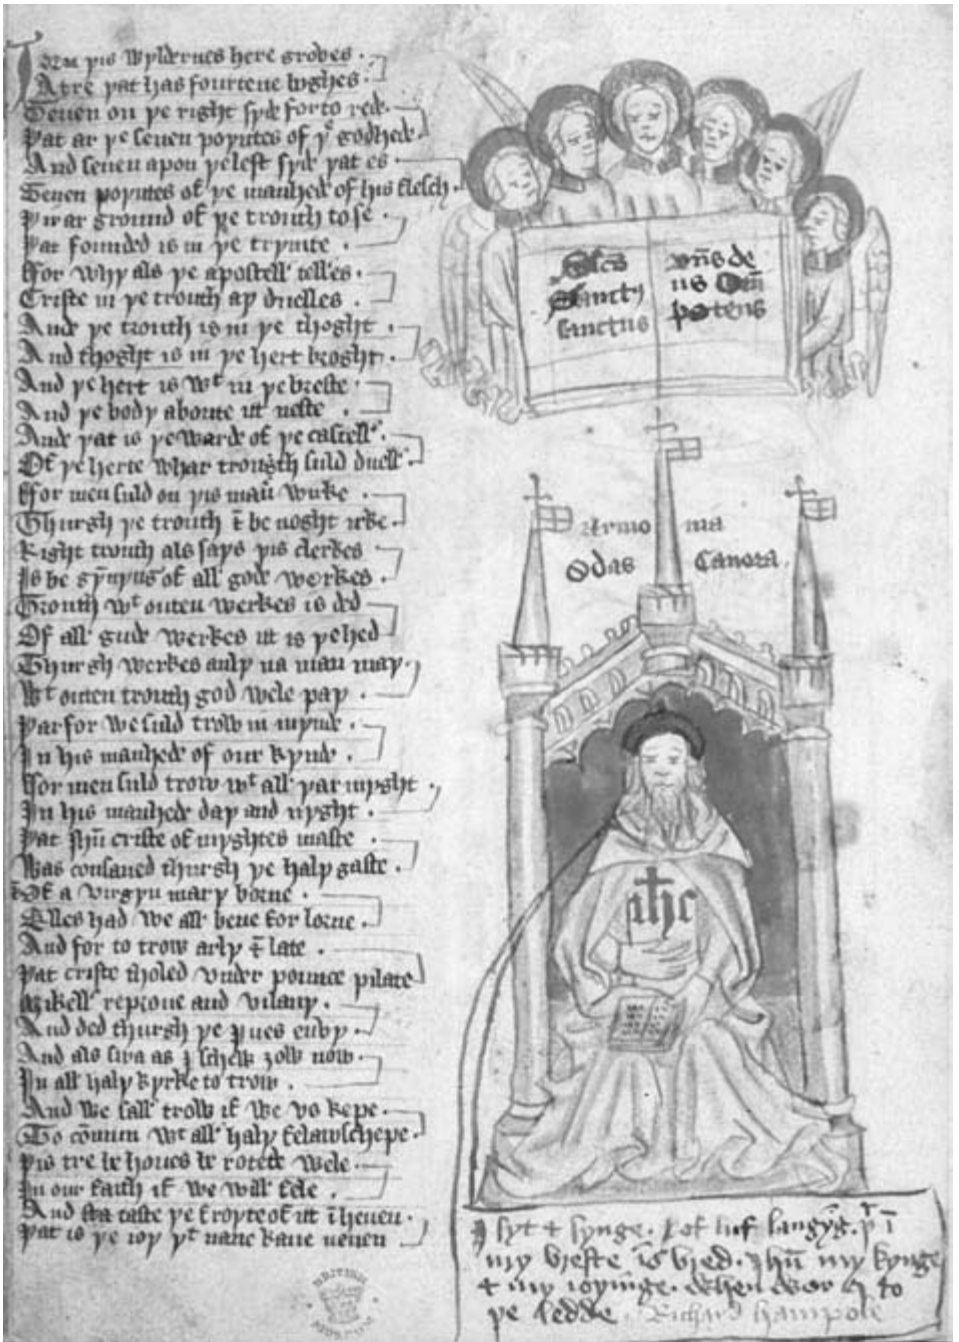 In yis wyldernes here growes
A tre yat has fourtene boghes
Seuen on ye right syde forto rede
Yat ar ye seuen poyntes of ye godhede
And seuen apon ye left syde yat es
Seuen poyntes of ye manhede of his flesch
ground of ye trouth to se
Yat founded is in ye trynite
ffor why als ye apostell telles
Criste in ye trouth ay duelles
And ye trouth is in ye thoght
And thoght is in ye hert broght
And ye hert is wt in ye breste
And ye body aboute it neste
And yat is ye warde of ye castell
Of ye herte whar trougth suld duell
ffor men suld on yis man wirke
Thurgh ye trouth & be noght irke
Right trouth als says yis clerkes
Is of all gode werkes
Trouth wt outen werkes is ded
Of all gude werkes it is ye hed
Thurgh werkes anly na man may
Wt outen trouth god wele pay
Yarfor we suld trow in mynde
In his manhede of our kynde
ffor men suld trow wt all yar myght
In his manhede day and nyght
Yat criste of myghtes maste
Was consaued thurgh ye haly gaste
& Of a virgyn mary borne
Elles had we all bene for lorne
And for to trow arly & late
Yat criste tholed vnder pounce pilate
Mikell reproue and vilany
And ded thurgh ye Iwes enuy
And als swa as I schew ȝow now
In all haly kyrke to trow
And we sall trow if we vs kepe
To comun wt all haly felawschepe
Yis tre be houes be roted wele
In our faith if we will fele
And sta taste ye froyte of it i heuen
Yat is ye ioy yt nane kane neuen
Scs
Sanctus
sanctus
dns de
us Om
potens
Armo nia
Odas Canora
ihc
I syt & synge. Of luf langyg. yt i
my breste is bred. Ihu my kynge
& my ioyinge. When wor I to
ye ledde. Richard hampole
BRITISH
MUSEUM